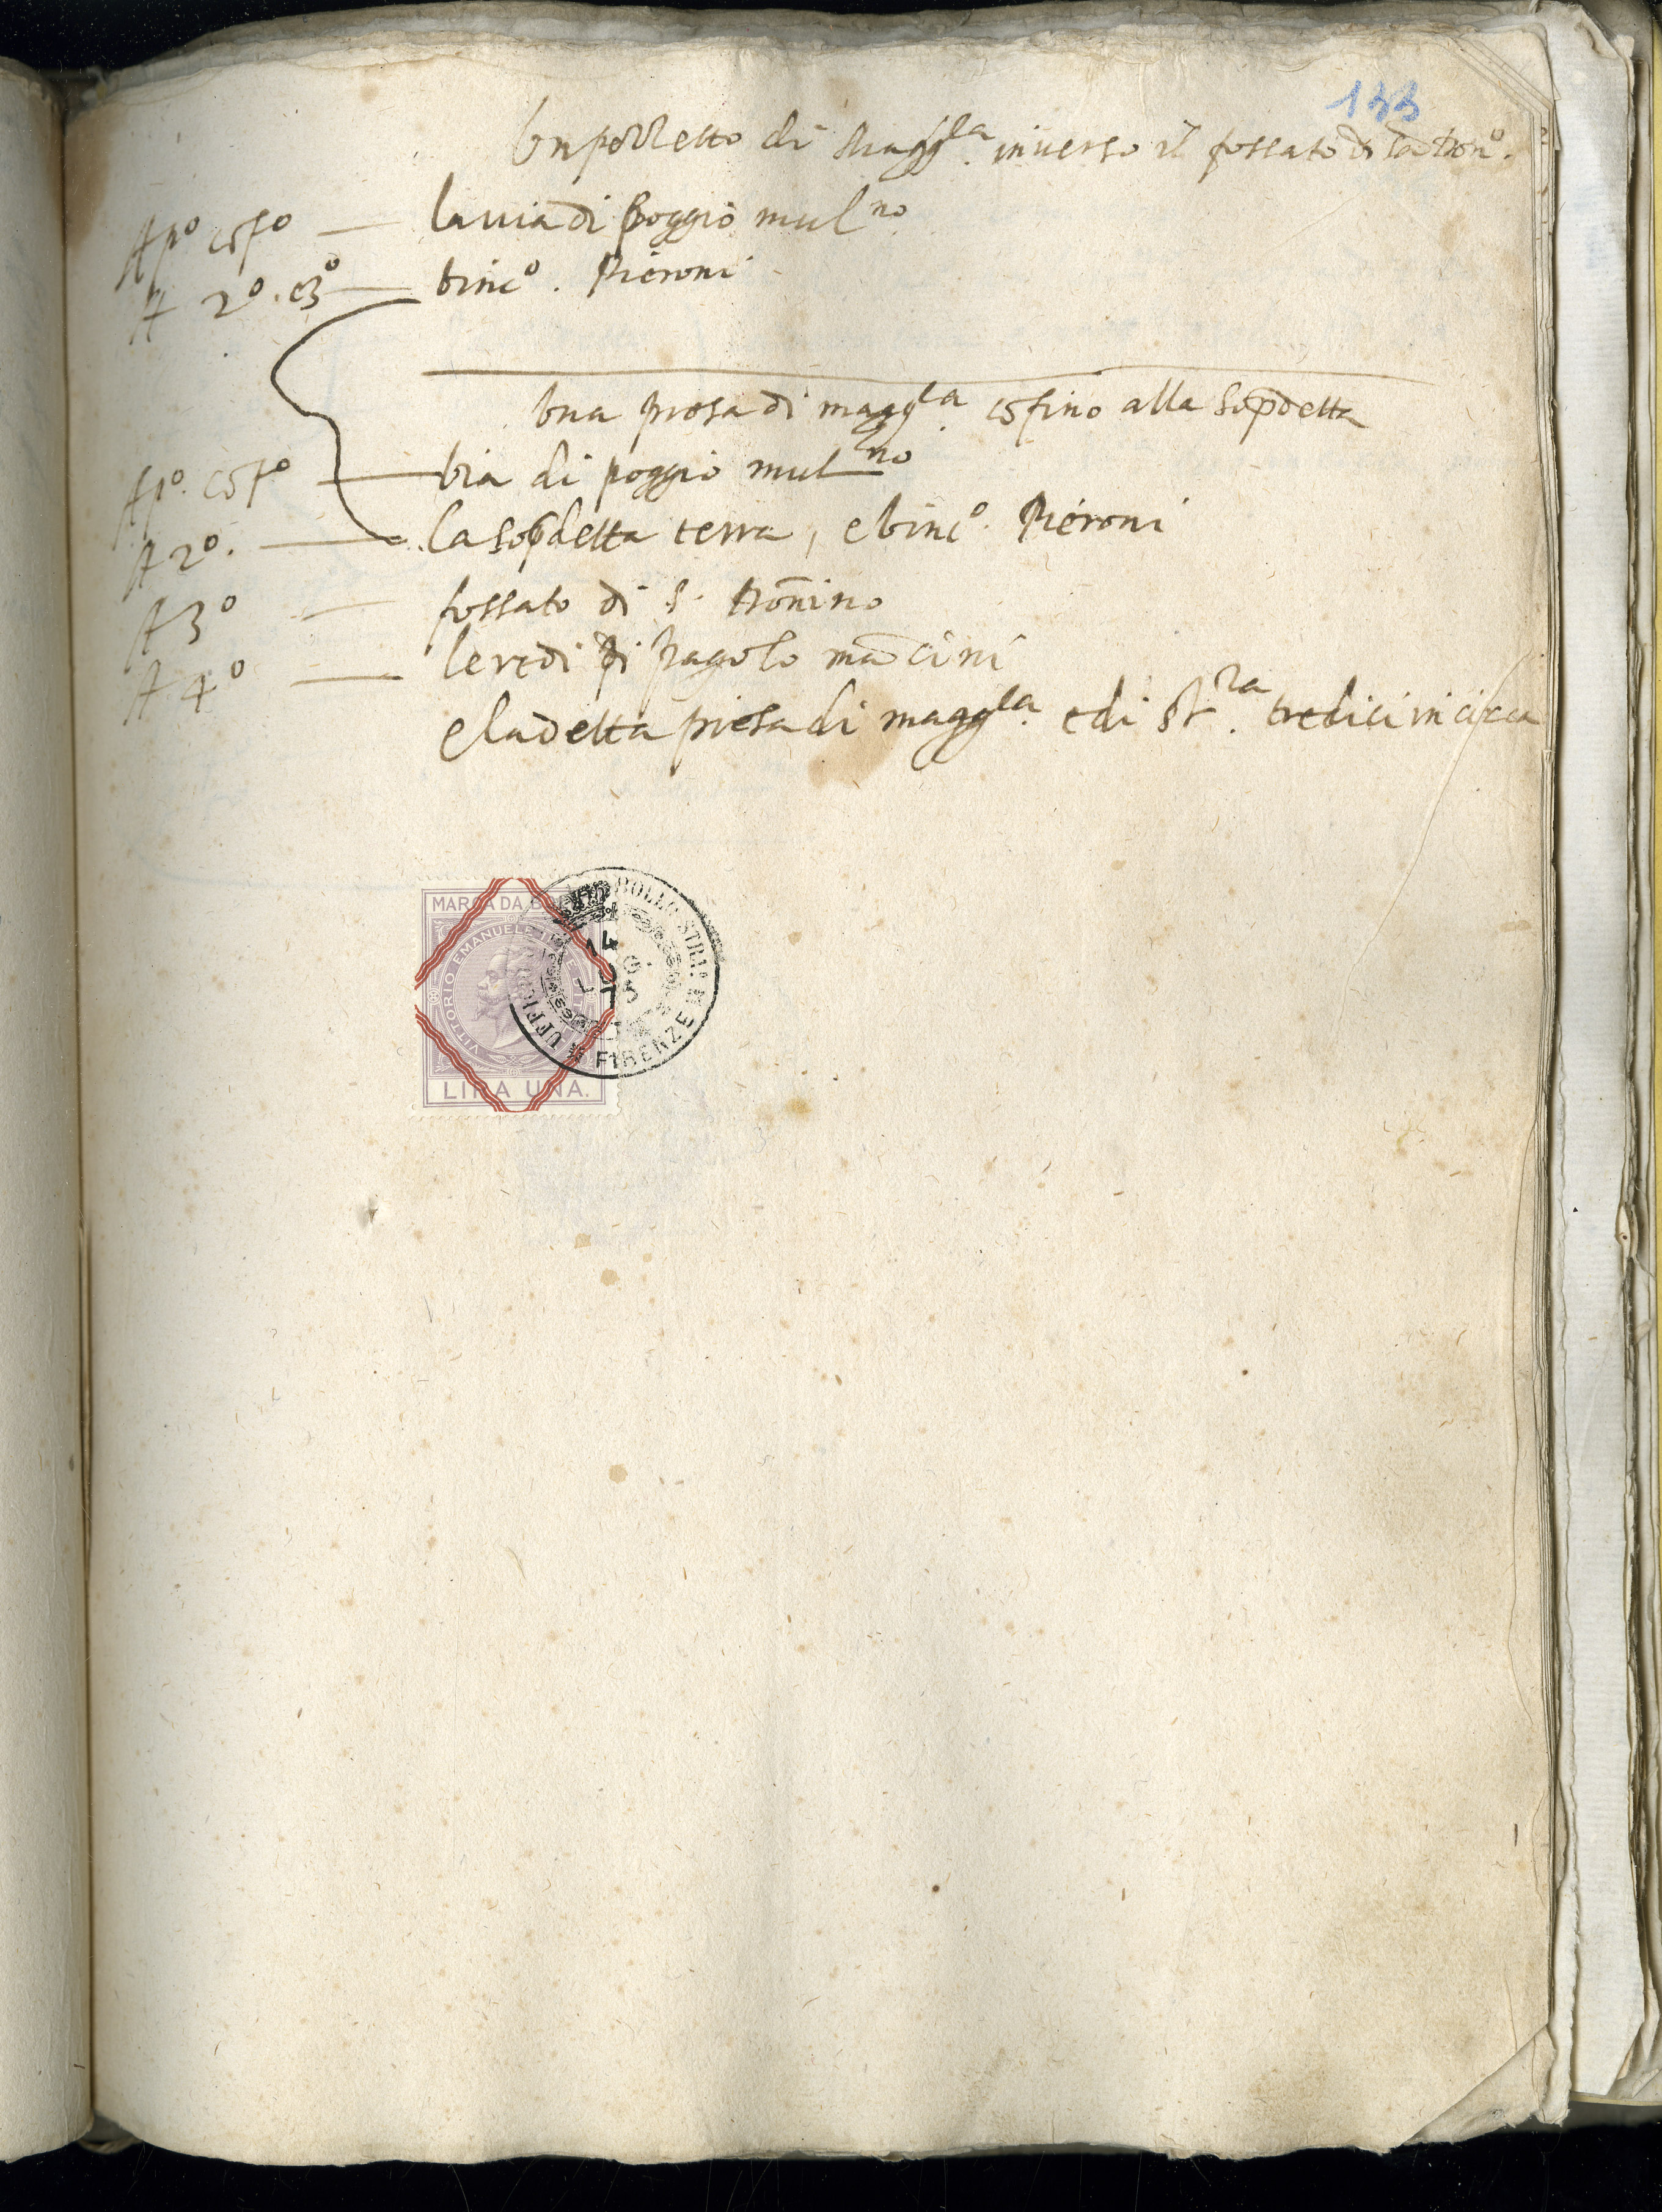 133
Un pezzetto di magg.la inverso il fossato di
A p.o cof.o — la via di Poggio mul.no
A 2.o e 3.o — Vinc.o Pieroni
Una presa di magg.la cofino alla Sopdetta
A p.o cof.o — Via di poggio mul.no
A 2.o — La sopdetta terra, e Vinc.o Pieroni
A 3.o — fossato di S. Donnino
A 4.o — le redi di pagolo macini
e la detta presa di magg.la e di st.ra tredici in circa
MARCA DA BOLLO
VITTORIO EMANUELE II RE D'IT
LIRA UNA.
UFFICIO BOLLO STRA.
14
FIRENZE